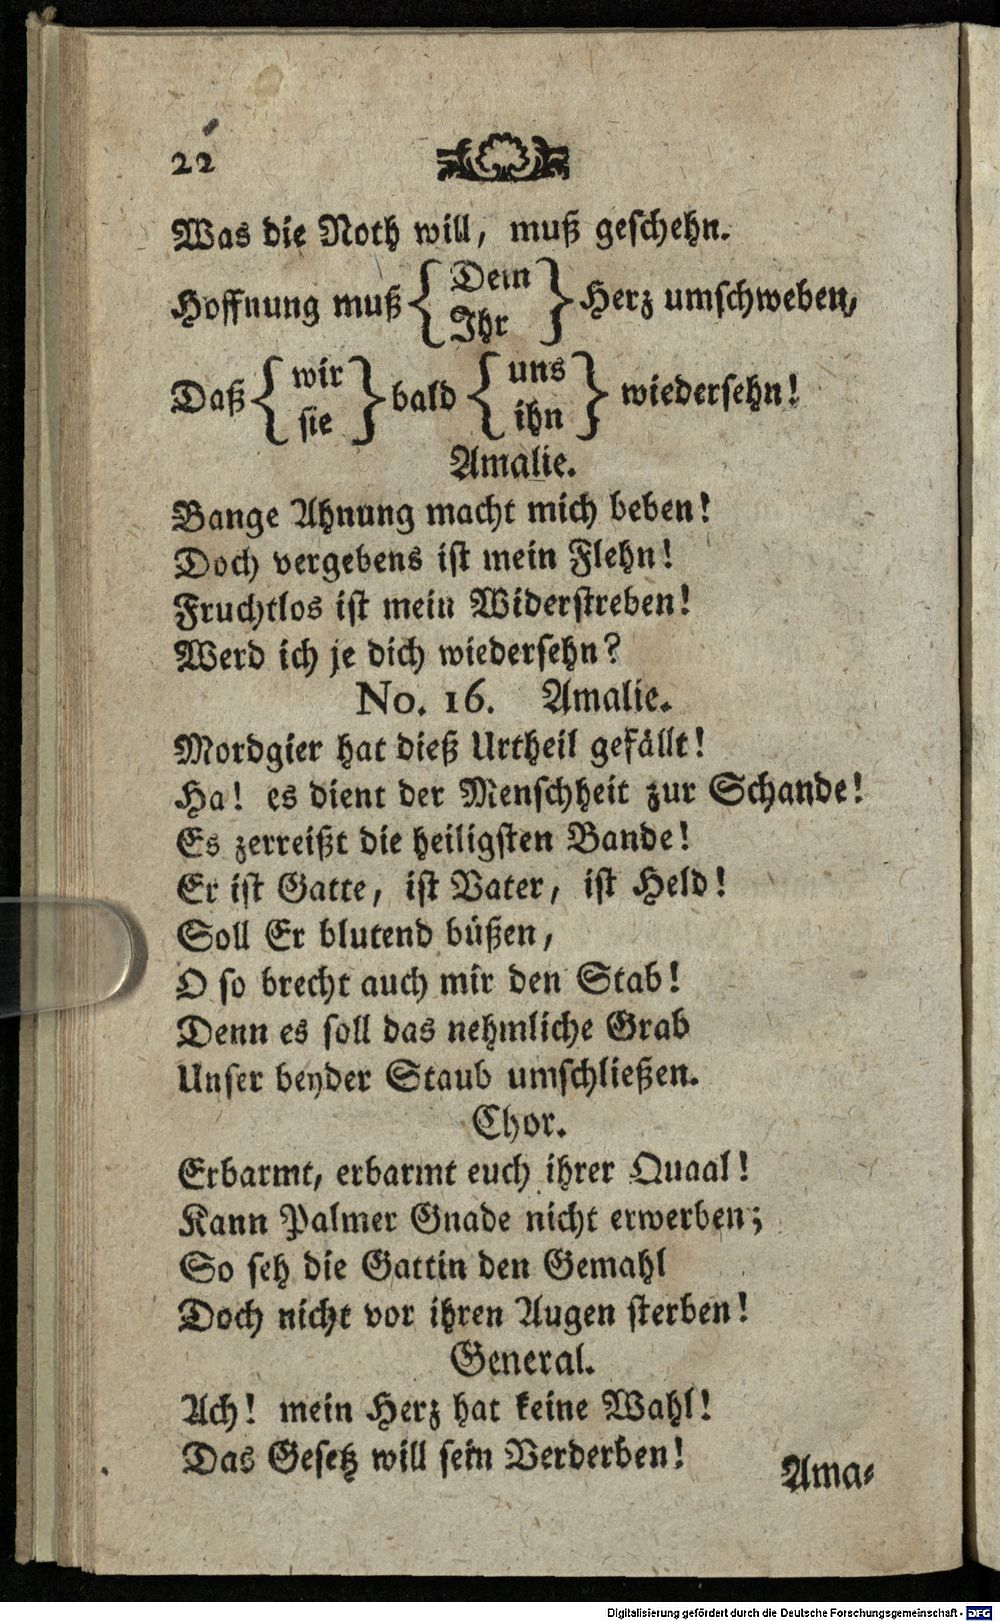 22
Was die Noth will, muß geschehn.
Hoffnung muß { Dein / Ihr } Herz umschweben,
Daß { wir / sie } bald { uns / ihn } wiedersehn!
Amalie.
Bange Ahnung macht mich beben!
Doch vergebens ist mein Flehn!
Fruchtlos ist mein Widerstreben!
Werd ich je dich wiedersehn?
No. 16. Amalie.
Mordgier hat dieß Urtheil gefällt!
Ha! es dient der Menschheit zur Schande!
Es zerreißt die heiligsten Bande!
Er ist Gatte, ist Vater, ist Held!
Soll Er blutend büßen,
O so brecht auch mir den Stab!
Denn es soll das nehmliche Grab
Unser beyder Staub umschließen.
Chor.
Erbarmt, erbarmt euch ihrer Quaal!
Kann Palmer Gnade nicht erwerben;
So seh die Gattin den Gemahl
Doch nicht vor ihren Augen sterben!
General.
Ach! mein Herz hat keine Wahl!
Das Gesetz will sein Verderben!
Ama-
Digitalisierung gefördert durch die Deutsche Forschungsgemeinschaft - DFG